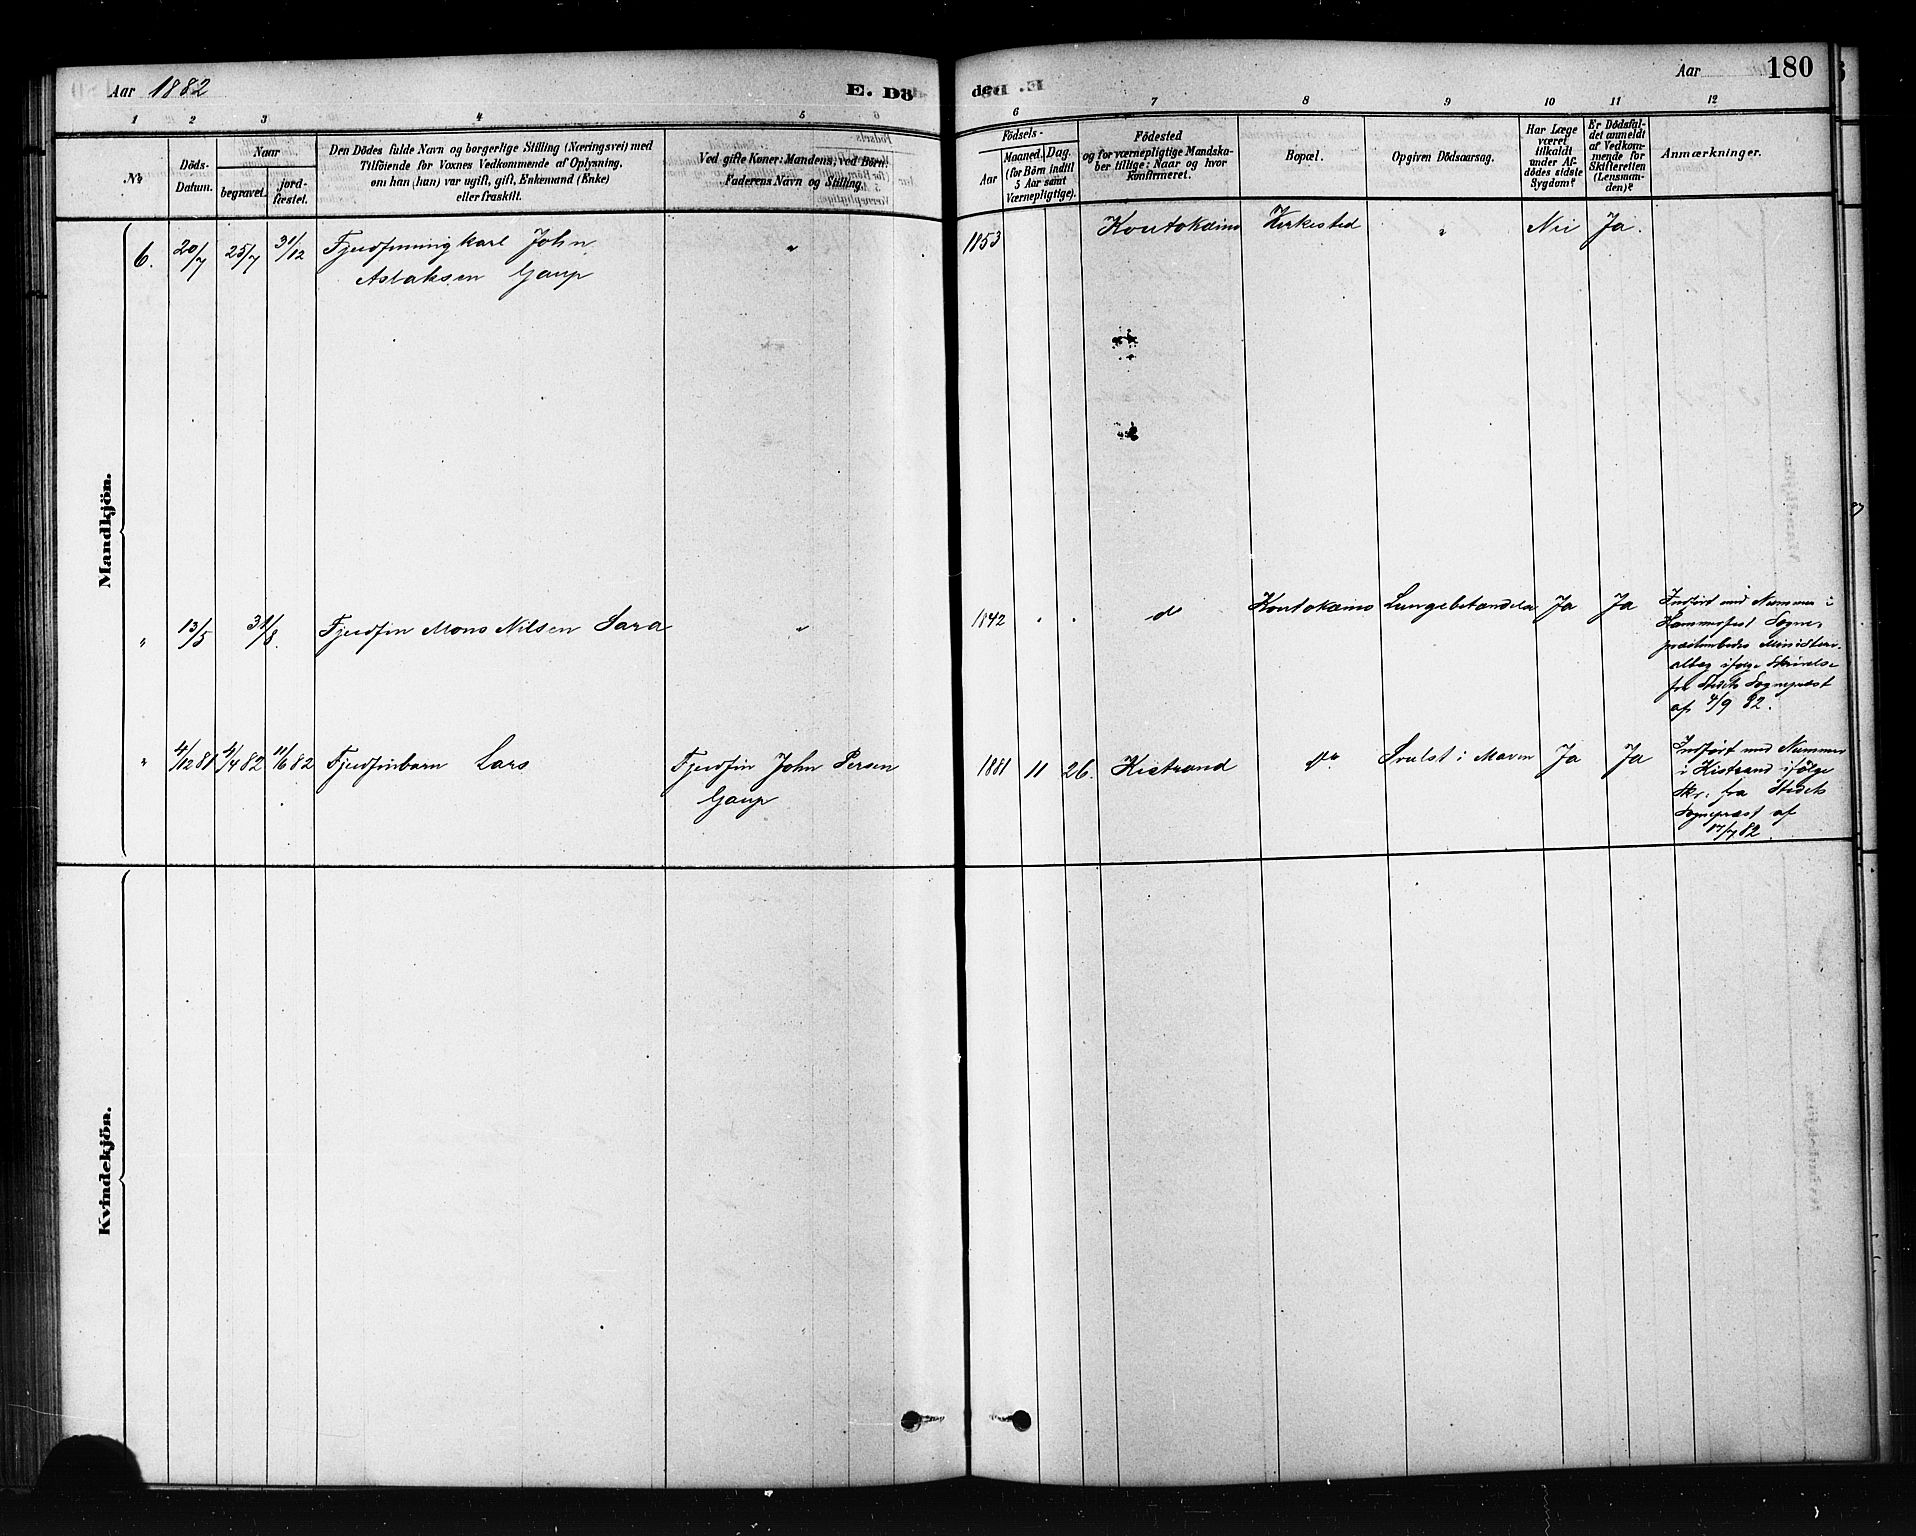 Aar 1882
E. Dö-
de.
Aar
180
1 2 3 4 5 6 7 8 9 10 11 12
No
Döds-Datum.
Naar
begravet.
jord-fæstet.
Den Dödes fulde Navn og borgerlige Stilling (Næringsvei) med
Tilföiende for Voxnes Vedkommende af Oplysning,
om han (hun) var ugift, gift, Enkemand (Enke)
eller fraskilt.
Ved gifte Koner: Mandens; ved Börn:
Faderens Navn og Stilling.
Födsels-
Aar
Maaned. Dag.
(for Börn indtil
5 Aar samt
Værnepligtige).
Födested
og for værnepligtige Mandska-
ber tillige: Naar og hvor
konfirmeret.
Bopæl.
Opgiven Dödsaarsag.
Har Læge
været
tilkaldt
under Af-
dödes sidste
Sygdom?
Er Dödsfal-
det anmeldt
af Vedkom-
mende for
Skifteretten
(Lensman-
den)?
Anmærkninger.
Mandkjön.
6. 20/7 25/7 31/12 Fjeldfinningkarl John " 1853 Koutokæino Kirkested " Nei Ja.
Aslaksen Gaup
" 13/5 31/8. Fjeldfin Mons Nilsen Sara " 1842 " " do Koutokæino Lungebetændelse Ja Ja
Indført med Nummer i
Hammerfest Sogne-
præstembedes Ministeri-
albog ifølge Skrivelse
fra Stedets Sognepræst
af 4/9 82.
" 4/12 81 4/4 82 11/6 82 Fjeldfinbarn Lars Fjeldfin John Persen 1881 11 26. Kistrand do Svulst i Maven Ja Ja
Gaup
Indført med Nummer
i Kistrand ifölge
Skr. fra Stedets
Sognepræst af
17/7 82.
Kvindekjön.